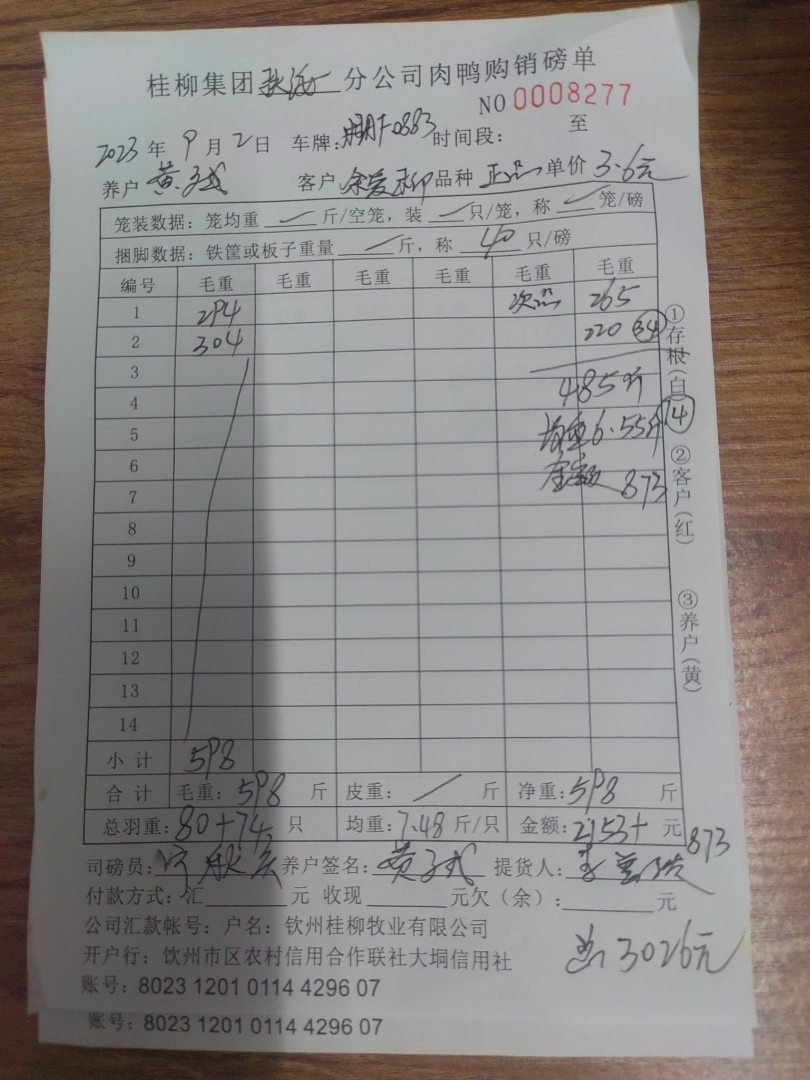 桂柳集团 分公司肉鸭购销磅单
NO 0008277
2023 年 9 月 2 日 车牌: F0883 时间段: 至
养户 黄子成 客户 余爱 品种 正品 单价 3.6元
笼装数据: 笼均重 斤/空笼, 装 只/笼, 称 笼/磅
捆脚数据: 铁筐或板子重量 斤, 称 40 只/磅
编号 毛重 毛重 毛重 毛重 毛重 毛重
1 294 次品 265
2 304 220 34
3
4 485斤
5 均重6.55斤 74
6 金额 873
7
8
9
10
11
12
13
14
小计 598
合计 毛重: 598 斤 皮重: / 斤 净重: 598 斤
总羽重: 80+74 只 均重: 7.48 斤/只 金额: 2153+ 元
873
司磅员: 养户签名: 黄子成 提货人:
付款方式: 汇 元 收现 元欠(余): 元
公司汇款帐号: 户名: 钦州桂柳牧业有限公司
开户行: 钦州市区农村信用合作联社大垌信用社
3026元
账号: 8023 1201 0114 4296 07
账号: 8023 1201 0114 4296 07
①存根(白)
②客户(红)
③养户(黄)